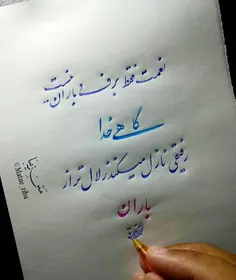 نعمت فقط برف و باران نیست..
گاهی خدا
رفیقی نازل میکند زلال تر از
باران
متن زیبا
@Matne_ziba